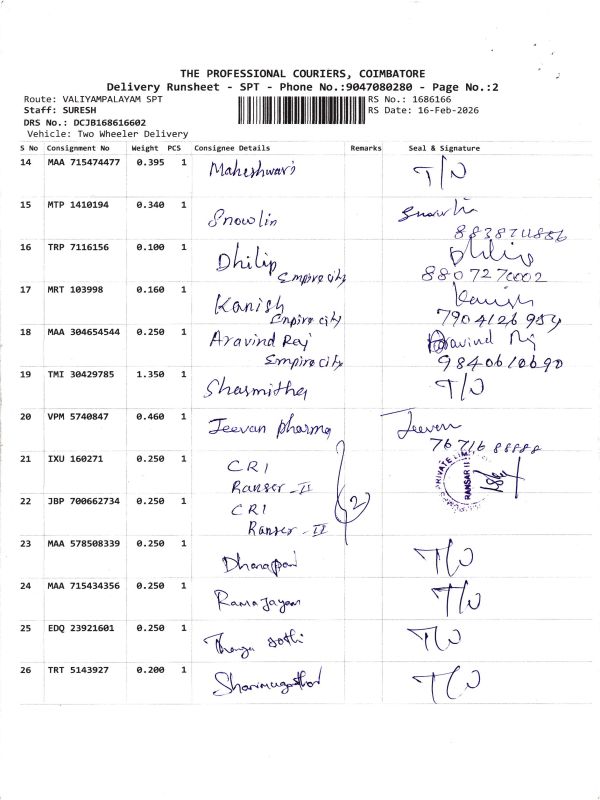 THE PROFESSIONAL COURIERS, COIMBATORE
Delivery Runsheet - SPT - Phone No.:9047080280 - Page No.:2
Route: VALIYAMPALAYAM SPT
RS No.: 1686166
Staff: SURESH
RS Date: 16-Feb-2026
DRS No.: DCJB168616602
Vehicle: Two Wheeler Delivery
S No Consignment No Weight PCS Consignee Details Remarks Seal & Signature
14 MAA 715474477 0.395 1 Maheshwari T/W
15 MTP 1410194 0.340 1 Snowlin Snowlin
16 TRP 7116156 0.100 1 Dhilip
Empire city 8807270002
17 MRT 103998 0.160 1 Kanish Kanish
Enpire city 7904126954
18 MAA 304654544 0.250 1 Aravind Raj Aravind Raj
Empire city 9840610690
19 TMI 30429785 1.350 1 Shasmitha T/W
20 VPM 5740847 0.460 1 Jeevan pharma Jeeven
76716 88888
21 IXU 160271 0.250 1 CRI
Ranser-II
RANSAR II
22 JBP 700662734 0.250 1 CRI 2
Ranser-II
23 MAA 578508339 0.250 1 T/W
24 MAA 715434356 0.250 1 Ramajayam T/W
25 EDQ 23921601 0.250 1 T/W
26 TRT 5143927 0.200 1 T/W